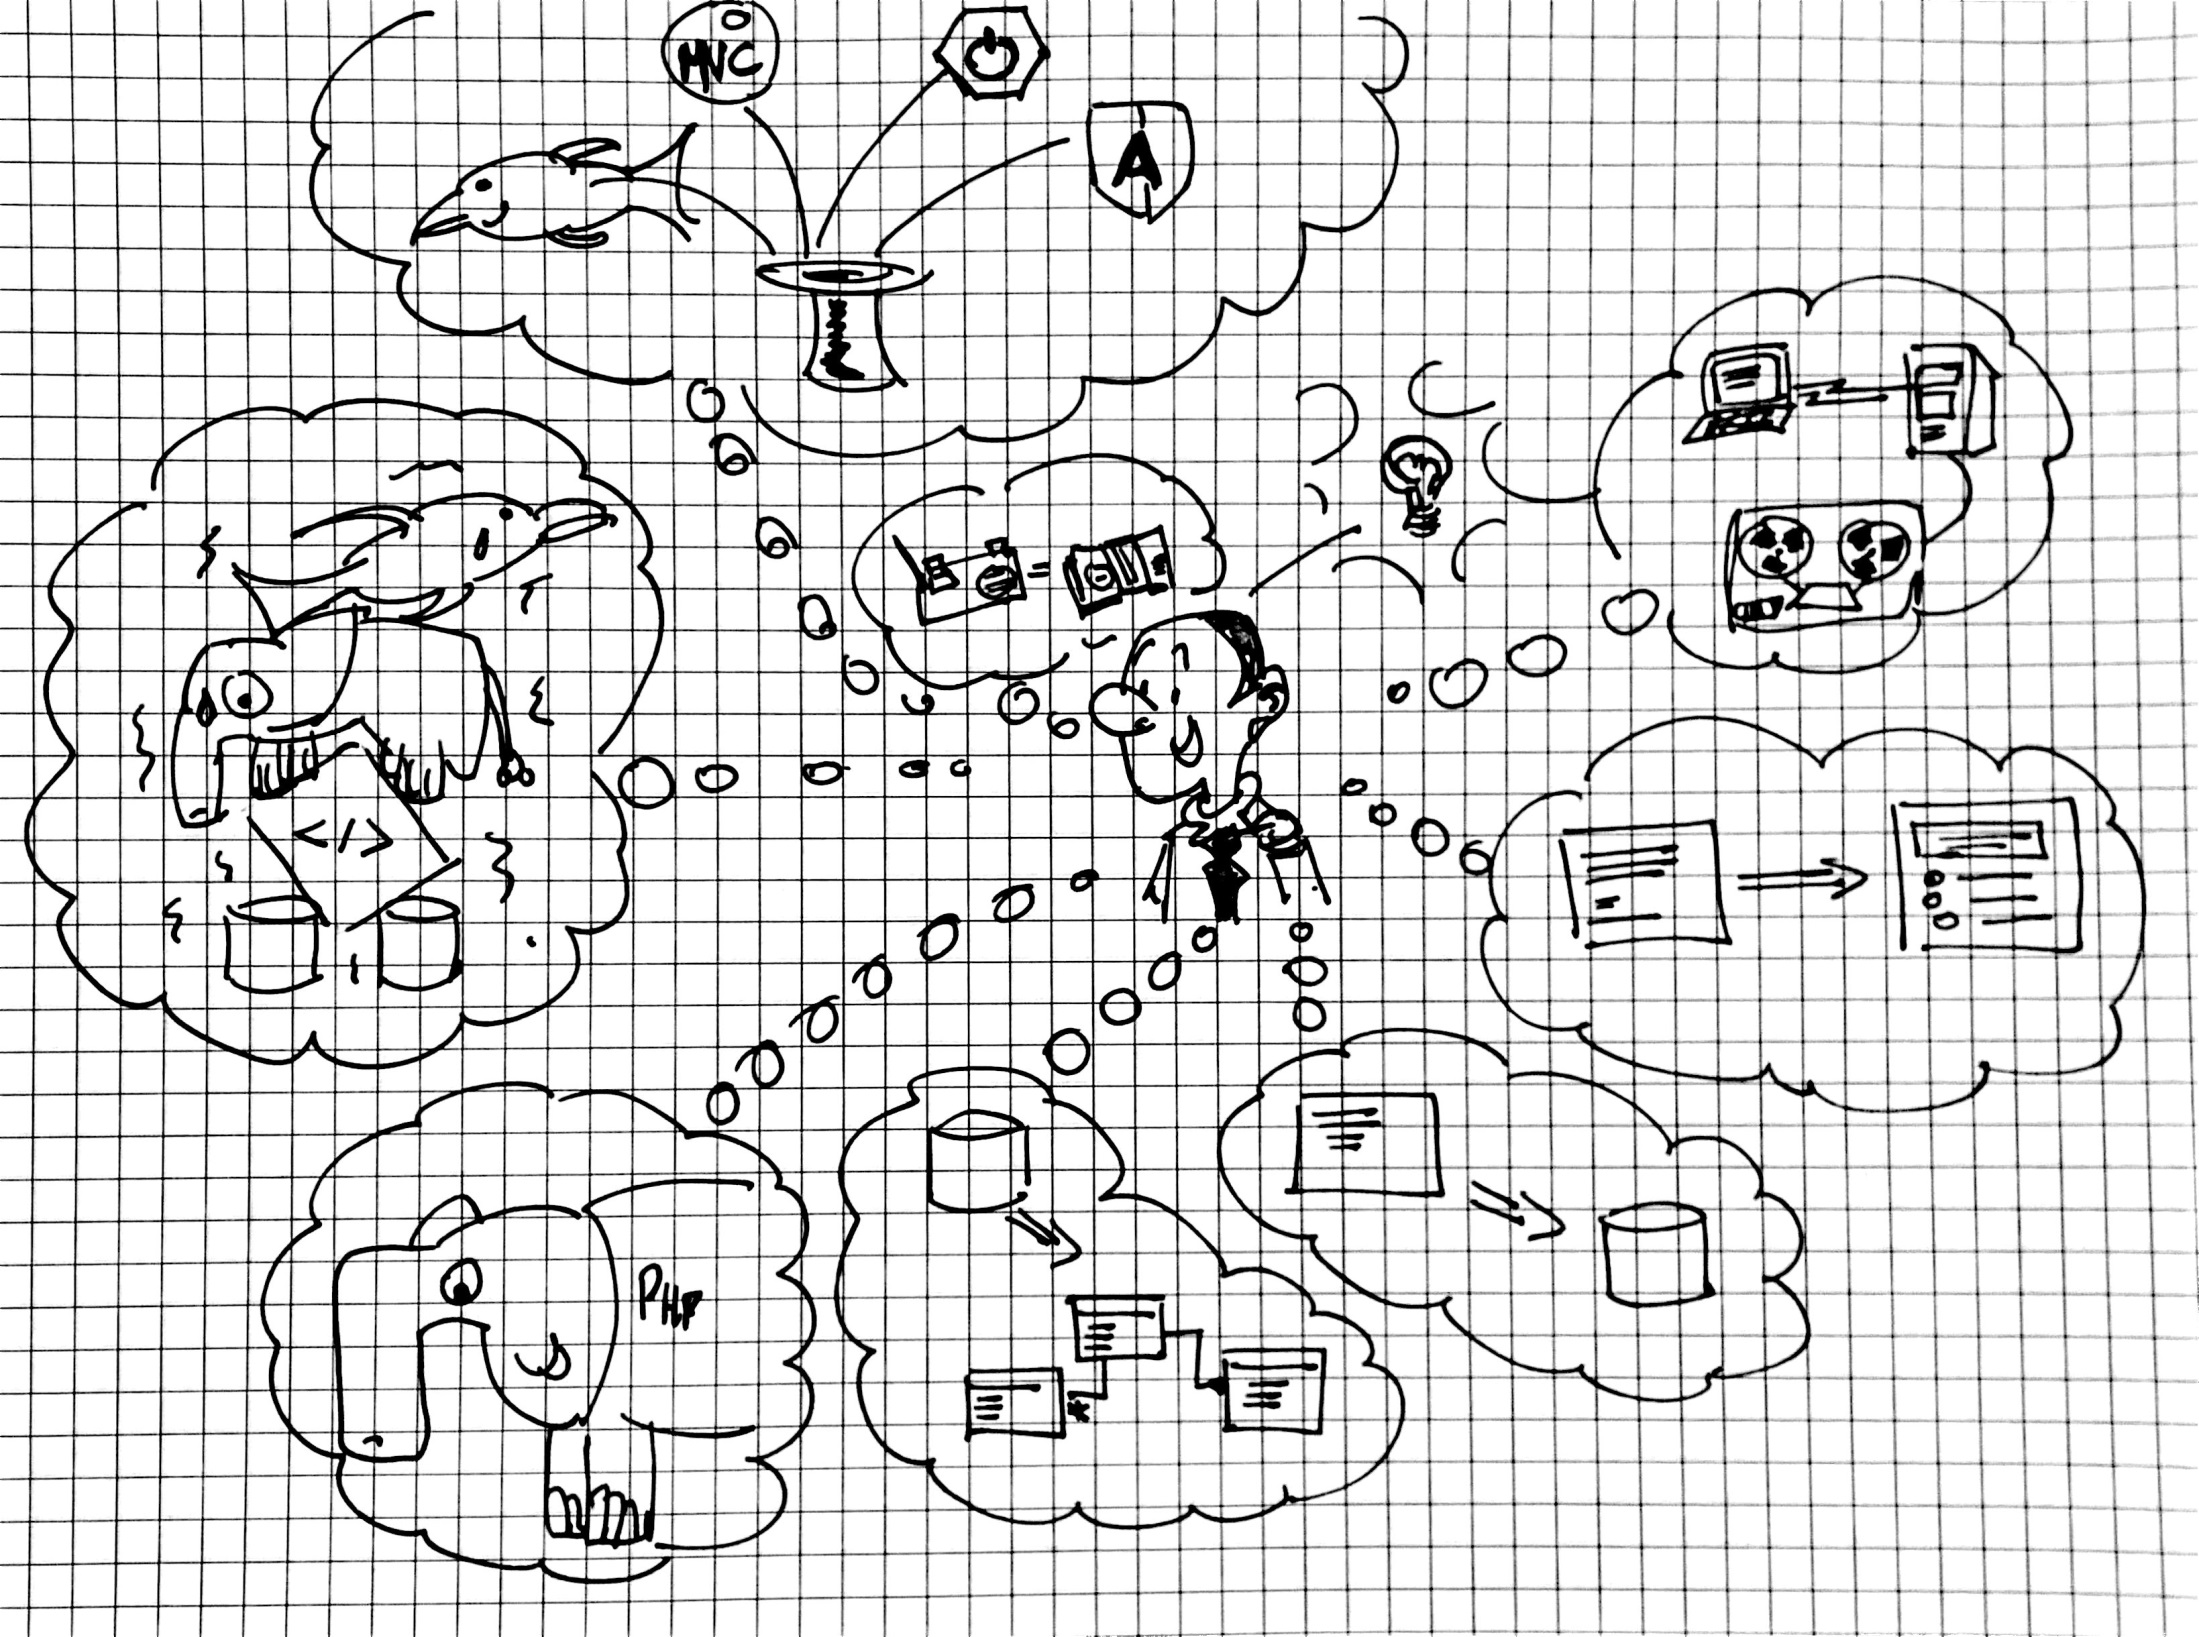 MVC
A
</>
PHP